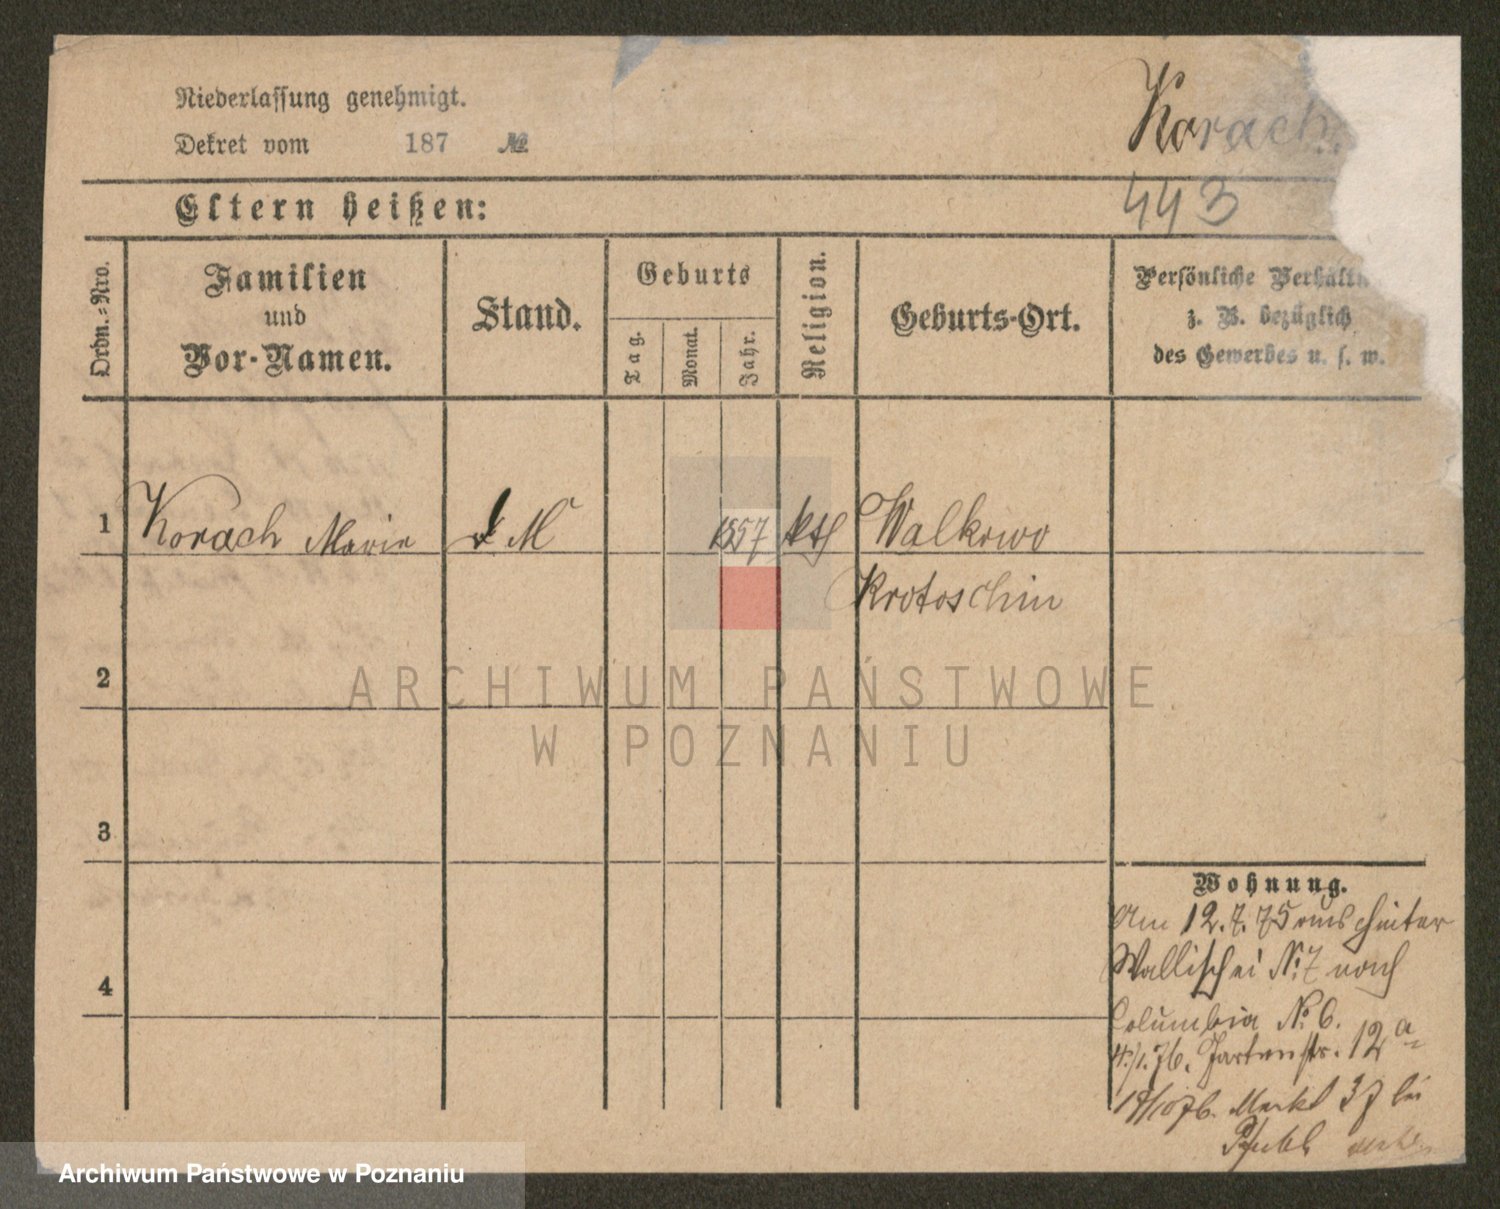 Niederlassung genehmigt.
Dekret vom 187 №
Korach.
443
Eltern heißen:
Ordn.-Nro.
Familien
und
Vor-Namen.
Stand.
Geburts
Tag.
Monat.
Jahr.
Religion.
Geburts-Ort.
Persönliche
z. B. bezüglich
des Gewerbes u. s. w.
1 Korach Marie d M 1857 kth Walkowo
Krotoschin
2
3
4
ARCHIWUM PAŃSTWOWE
W POZNANIU
Wohnung.
Am 12.7.75 aus hinter
Wallischei № 7 nach
Columbia № 6.
4/1.76. Gartenstr. 12a
18/10 76. Markt 37 bei
Archiwum Państwowe w Poznaniu